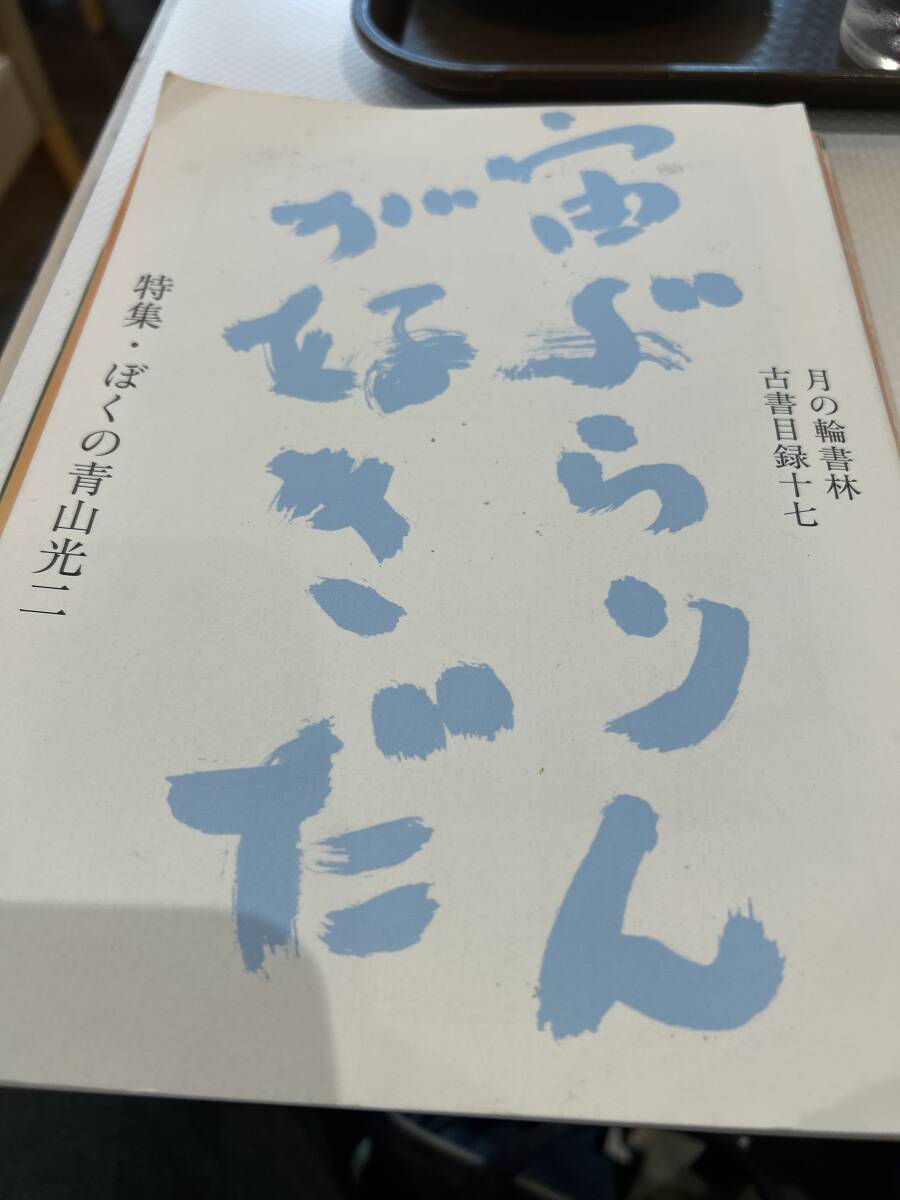 月の輪書林
古書目録十七
寅ぶらりん
が好きだ
特集・ぼくの青山光二